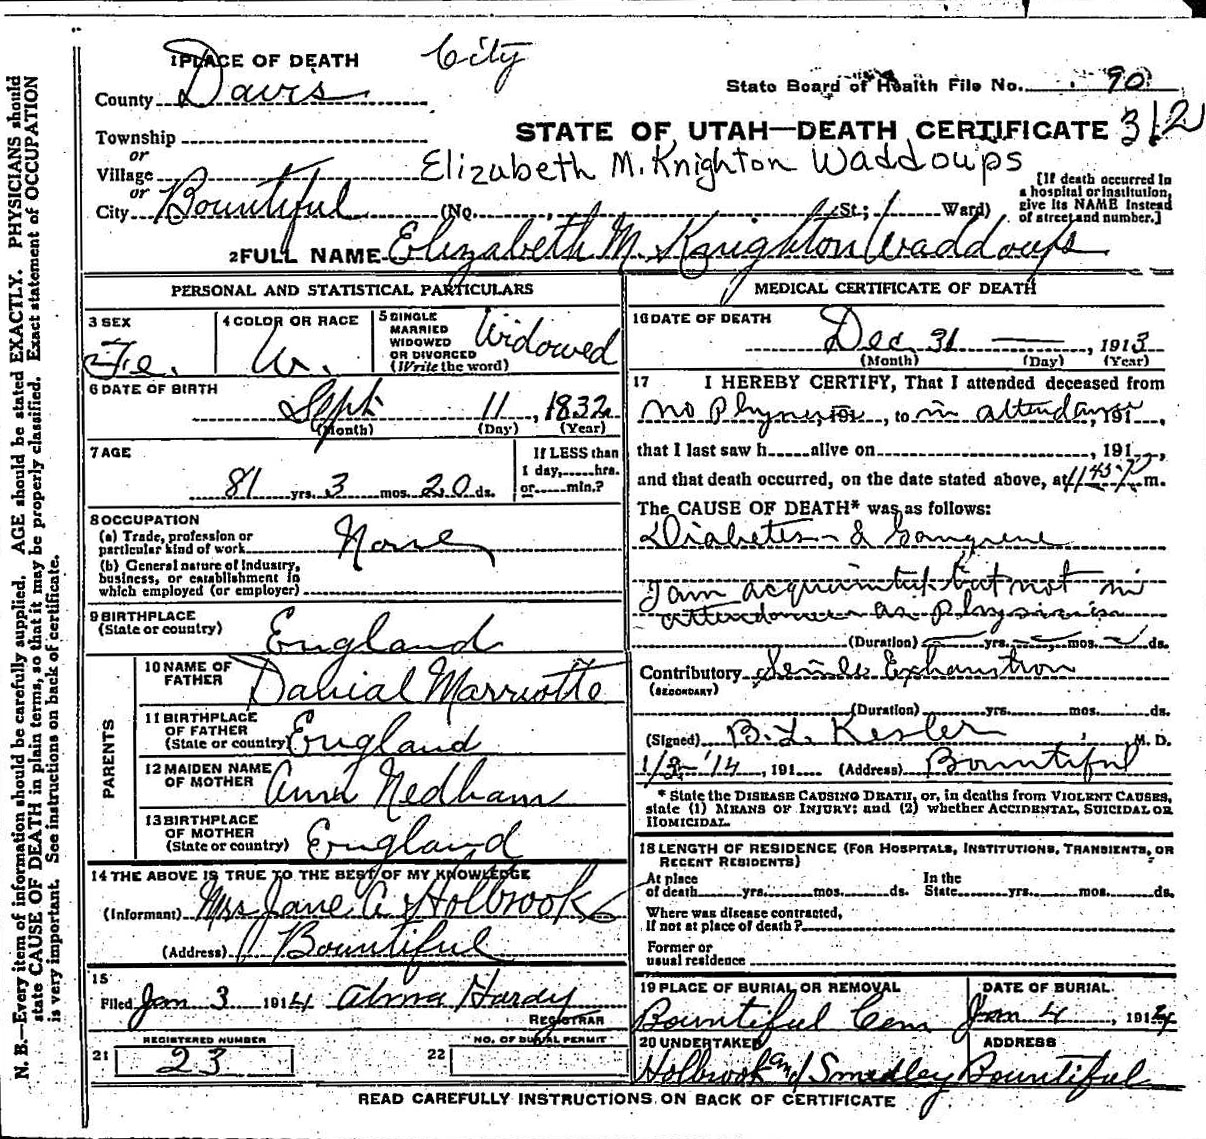 1 PLACE OF DEATH City
County Davis
State Board of Health File No. 90
Township
STATE OF UTAH—DEATH CERTIFICATE 312
or
Village
Elizabeth M. Knighton Waddoups
or
City Bountiful (No. St.; Ward)
[If death occurred in
a hospital or institution,
give its NAME instead
of street and number.]
2 FULL NAME Elizabeth M. Knighton Waddoups
PERSONAL AND STATISTICAL PARTICULARS
3 SEX
Fe.
4 COLOR OR RACE
W.
5 SINGLE
MARRIED
WIDOWED
OR DIVORCED
(Write the word)
Widowed
6 DATE OF BIRTH
Sept 11, 1832
(Month) (Day) (Year)
7 AGE
81 yrs. 3 mos. 20 ds.
If LESS than
1 day, hrs.
or min.?
8 OCCUPATION
(a) Trade, profession or
particular kind of work None
(b) General nature of Industry,
business, or establishment in
which employed (or employer)
9 BIRTHPLACE
(State or country) England
PARENTS
10 NAME OF
FATHER Danial Marriotte
11 BIRTHPLACE
OF FATHER
(State or country) England
12 MAIDEN NAME
OF MOTHER Ann Nedham
13 BIRTHPLACE
OF MOTHER
(State or country) England
14 THE ABOVE IS TRUE TO THE BEST OF MY KNOWLEDGE
(Informant) Mrs Jane A Holbrook
(Address) Bountiful
15
Filed Jan 3 1914 Alma Hardy
REGISTRAR
21 REGISTERED NUMBER
23
22 NO. OF BURIAL PERMIT
MEDICAL CERTIFICATE OF DEATH
16 DATE OF DEATH
Dec 31, 1913
(Month) (Day) (Year)
17 I HEREBY CERTIFY, That I attended deceased from
no Physician, 191 , to in attendance, 191 ,
that I last saw h alive on , 191 ,
and that death occurred, on the date stated above, at 11 45 P m.
The CAUSE OF DEATH* was as follows:
Diabetes & Gangrene
I am acquainted but not in
attendance as physician
(Duration) yrs. mos. ds.
Contributory Senile Exhaustion
(SECONDARY)
(Duration) yrs. mos. ds.
(Signed) B. L. Kesler, M. D.
1/2 '14, 191 (Address) Bountiful
* State the DISEASE CAUSING DEATH, or, in deaths from VIOLENT CAUSES,
state (1) MEANS OF INJURY; and (2) whether ACCIDENTAL, SUICIDAL OR
HOMICIDAL.
18 LENGTH OF RESIDENCE (FOR HOSPITALS, INSTITUTIONS, TRANSIENTS, OR
RECENT RESIDENTS)
At place
of death yrs. mos. ds.
In the
State yrs. mos. ds.
Where was disease contracted,
If not at place of death?
Former or
usual residence
19 PLACE OF BURIAL OR REMOVAL
Bountiful Cem
DATE OF BURIAL
Jan 4, 1914
20 UNDERTAKER
Holbrook and Smedley
ADDRESS
Bountiful
READ CAREFULLY INSTRUCTIONS ON BACK OF CERTIFICATE
N. B.—Every item of information should be carefully supplied. AGE should be stated EXACTLY. PHYSICIANS should
state CAUSE OF DEATH in plain terms, so that it may be properly classified. Exact statement of OCCUPATION
is very important. See instructions on back of certificate.